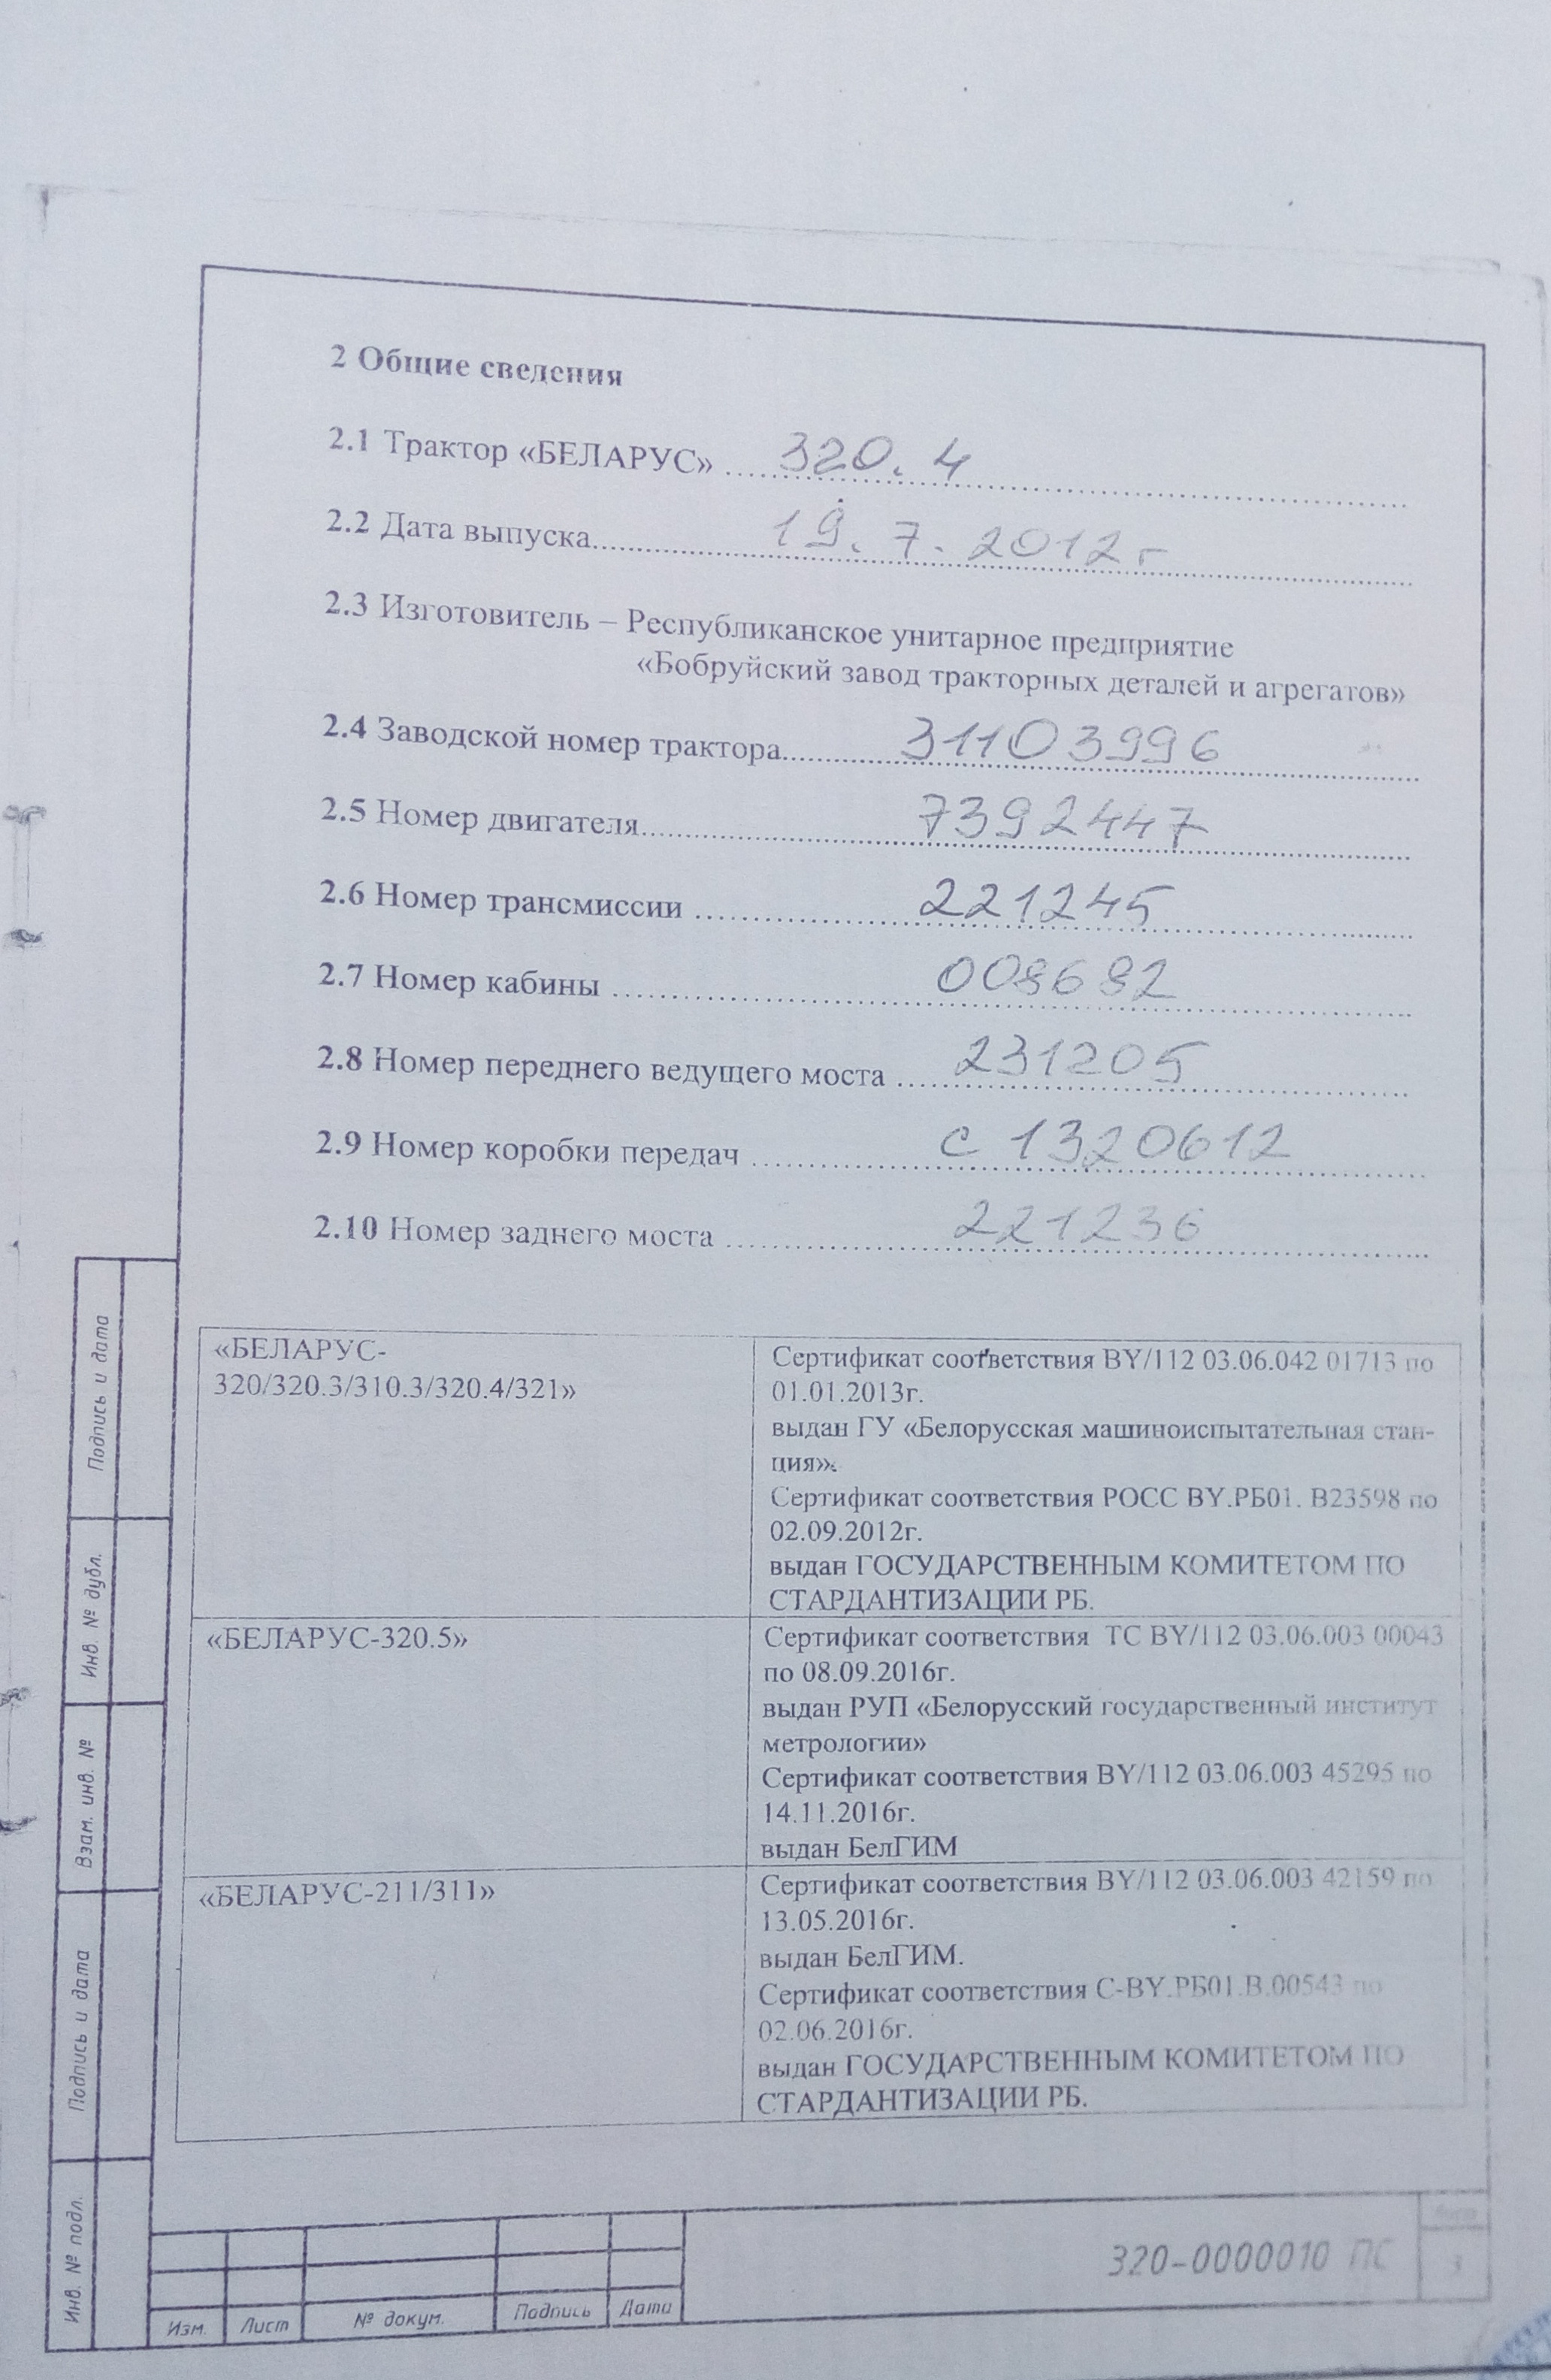 2 Общие сведения
2.1 Трактор «БЕЛАРУС» 320.4
2.2 Дата выпуска 19.7.2012г
2.3 Изготовитель – Республиканское унитарное предприятие
«Бобруйский завод тракторных деталей и агрегатов»
2.4 Заводской номер трактора 31103996
2.5 Номер двигателя 7392447
2.6 Номер трансмиссии 221245
2.7 Номер кабины 008682
2.8 Номер переднего ведущего моста 231205
2.9 Номер коробки передач с 1320612
2.10 Номер заднего моста 221236
«БЕЛАРУС-
320/320.3/310.3/320.4/321»
Сертификат соответствия BY/112 03.06.042 01713 по
01.01.2013г.
выдан ГУ «Белорусская машиноиспытательная стан-
ция».
Сертификат соответствия РОСС BY.РБ01. В23598 по
02.09.2012г.
выдан ГОСУДАРСТВЕННЫМ КОМИТЕТОМ ПО
СТАРДАНТИЗАЦИИ РБ.
«БЕЛАРУС-320.5»
Сертификат соответствия ТС BY/112 03.06.003 00043
по 08.09.2016г.
выдан РУП «Белорусский государственный институт
метрологии»
Сертификат соответствия BY/112 03.06.003 45295 по
14.11.2016г.
выдан БелГИМ
«БЕЛАРУС-211/311»
Сертификат соответствия BY/112 03.06.003 42159 по
13.05.2016г.
выдан БелГИМ.
Сертификат соответствия С-BY.РБ01.В.00543 по
02.06.2016г.
выдан ГОСУДАРСТВЕННЫМ КОМИТЕТОМ ПО
СТАРДАНТИЗАЦИИ РБ.
Подпись и дата
Инв. № дубл.
Взам. инв. №
Подпись и дата
Инв. № подл.
Изм. Лист № докум. Подпись Дата
320-0000010 ПС
3